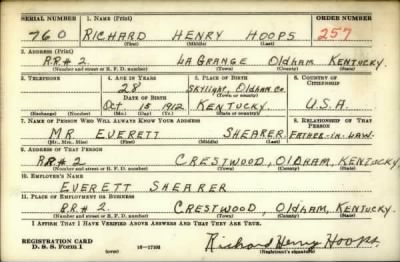 SERIAL NUMBER 1. NAME (Print) ORDER NUMBER
760 RICHARD HENRY HOOPS 257
(First) (Middle) (Last)
2. ADDRESS (Print)
R.R# 2. LA GRANGE Oldham KENTUCKY.
(Number and street or R. F. D. number) (Town) (County) (State)
3. TELEPHONE 4. AGE IN YEARS 5. PLACE OF BIRTH 6. COUNTRY OF CITIZENSHIP
28 Skylight, Oldham Co.
(Town or county)
DATE OF BIRTH
Oct 15 1912 KENTUCKY. U.S.A.
(Exchange) (Number) (Mo.) (Day) (Yr.) (State or country)
7. NAME OF PERSON WHO WILL ALWAYS KNOW YOUR ADDRESS 8. RELATIONSHIP OF THAT PERSON
MR EVERETT SHEARER FATHER-IN-LAW.
(Mr., Mrs., Miss) (First) (Middle) (Last)
9. ADDRESS OF THAT PERSON
R.R.# 2 CRESTWOOD, OLDHAM, KENTUCKY
(Number and street or R. F. D. number) (Town) (County) (State)
10. EMPLOYER'S NAME
EVERETT SHEARER
11. PLACE OF EMPLOYMENT OR BUSINESS
R.R.# 2 CRESTWOOD, OLDHAM, KENTUCKY.
(Number and street or R. F. D. number) (Town) (County) (State)
I AFFIRM THAT I HAVE VERIFIED ABOVE ANSWERS AND THAT THEY ARE TRUE.
REGISTRATION CARD
D. S. S. FORM 1 (over) 16—17105 Richard Henry Hoops
(Registrant's signature)